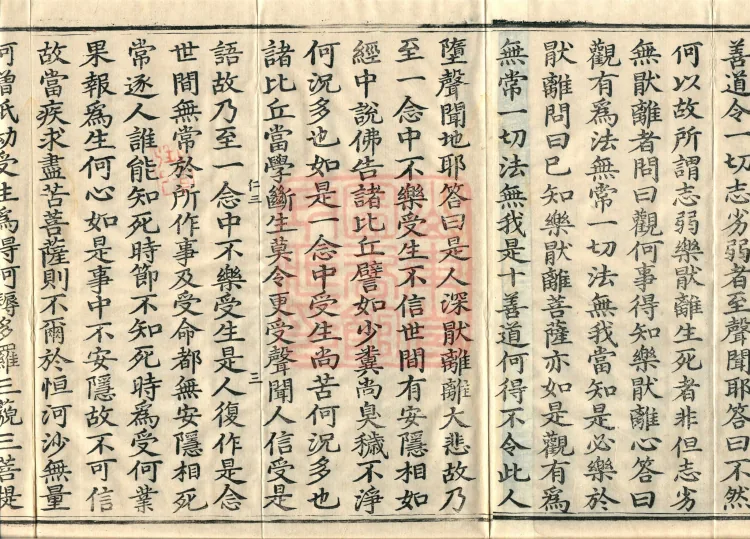 善道令一切志劣弱者至聲聞耶答曰不然
何以故所謂志弱樂猒離生死者非但志劣
無猒離者問曰觀何事得知樂猒離心答曰
觀有爲法無常一切法無我當知是必樂於
猒離問曰已知樂猒離菩薩亦如是觀有爲
無常一切法無我是十善道何得不令此人
墮聲聞地耶答曰是人深猒離離大悲故乃
至一念中不樂受生不信世間有安隱相如
經中說佛告諸比丘譬如少糞尚臭穢不淨
何況多也如是一念中受生尚苦何況多也
諸比丘當學斷生莫令更受聲聞人信受是
仁三 三
語故乃至一念中不樂受生是人復作是念
世間無常於所作事及受命都無安隱相死
常逐人誰能知死時節不知死時爲受何業
果報爲生何心如是事中不安隱故不可信
故當疾求盡苦菩薩則不爾於恒河沙無量
阿僧祇劫受生爲得阿耨多羅三藐三菩提